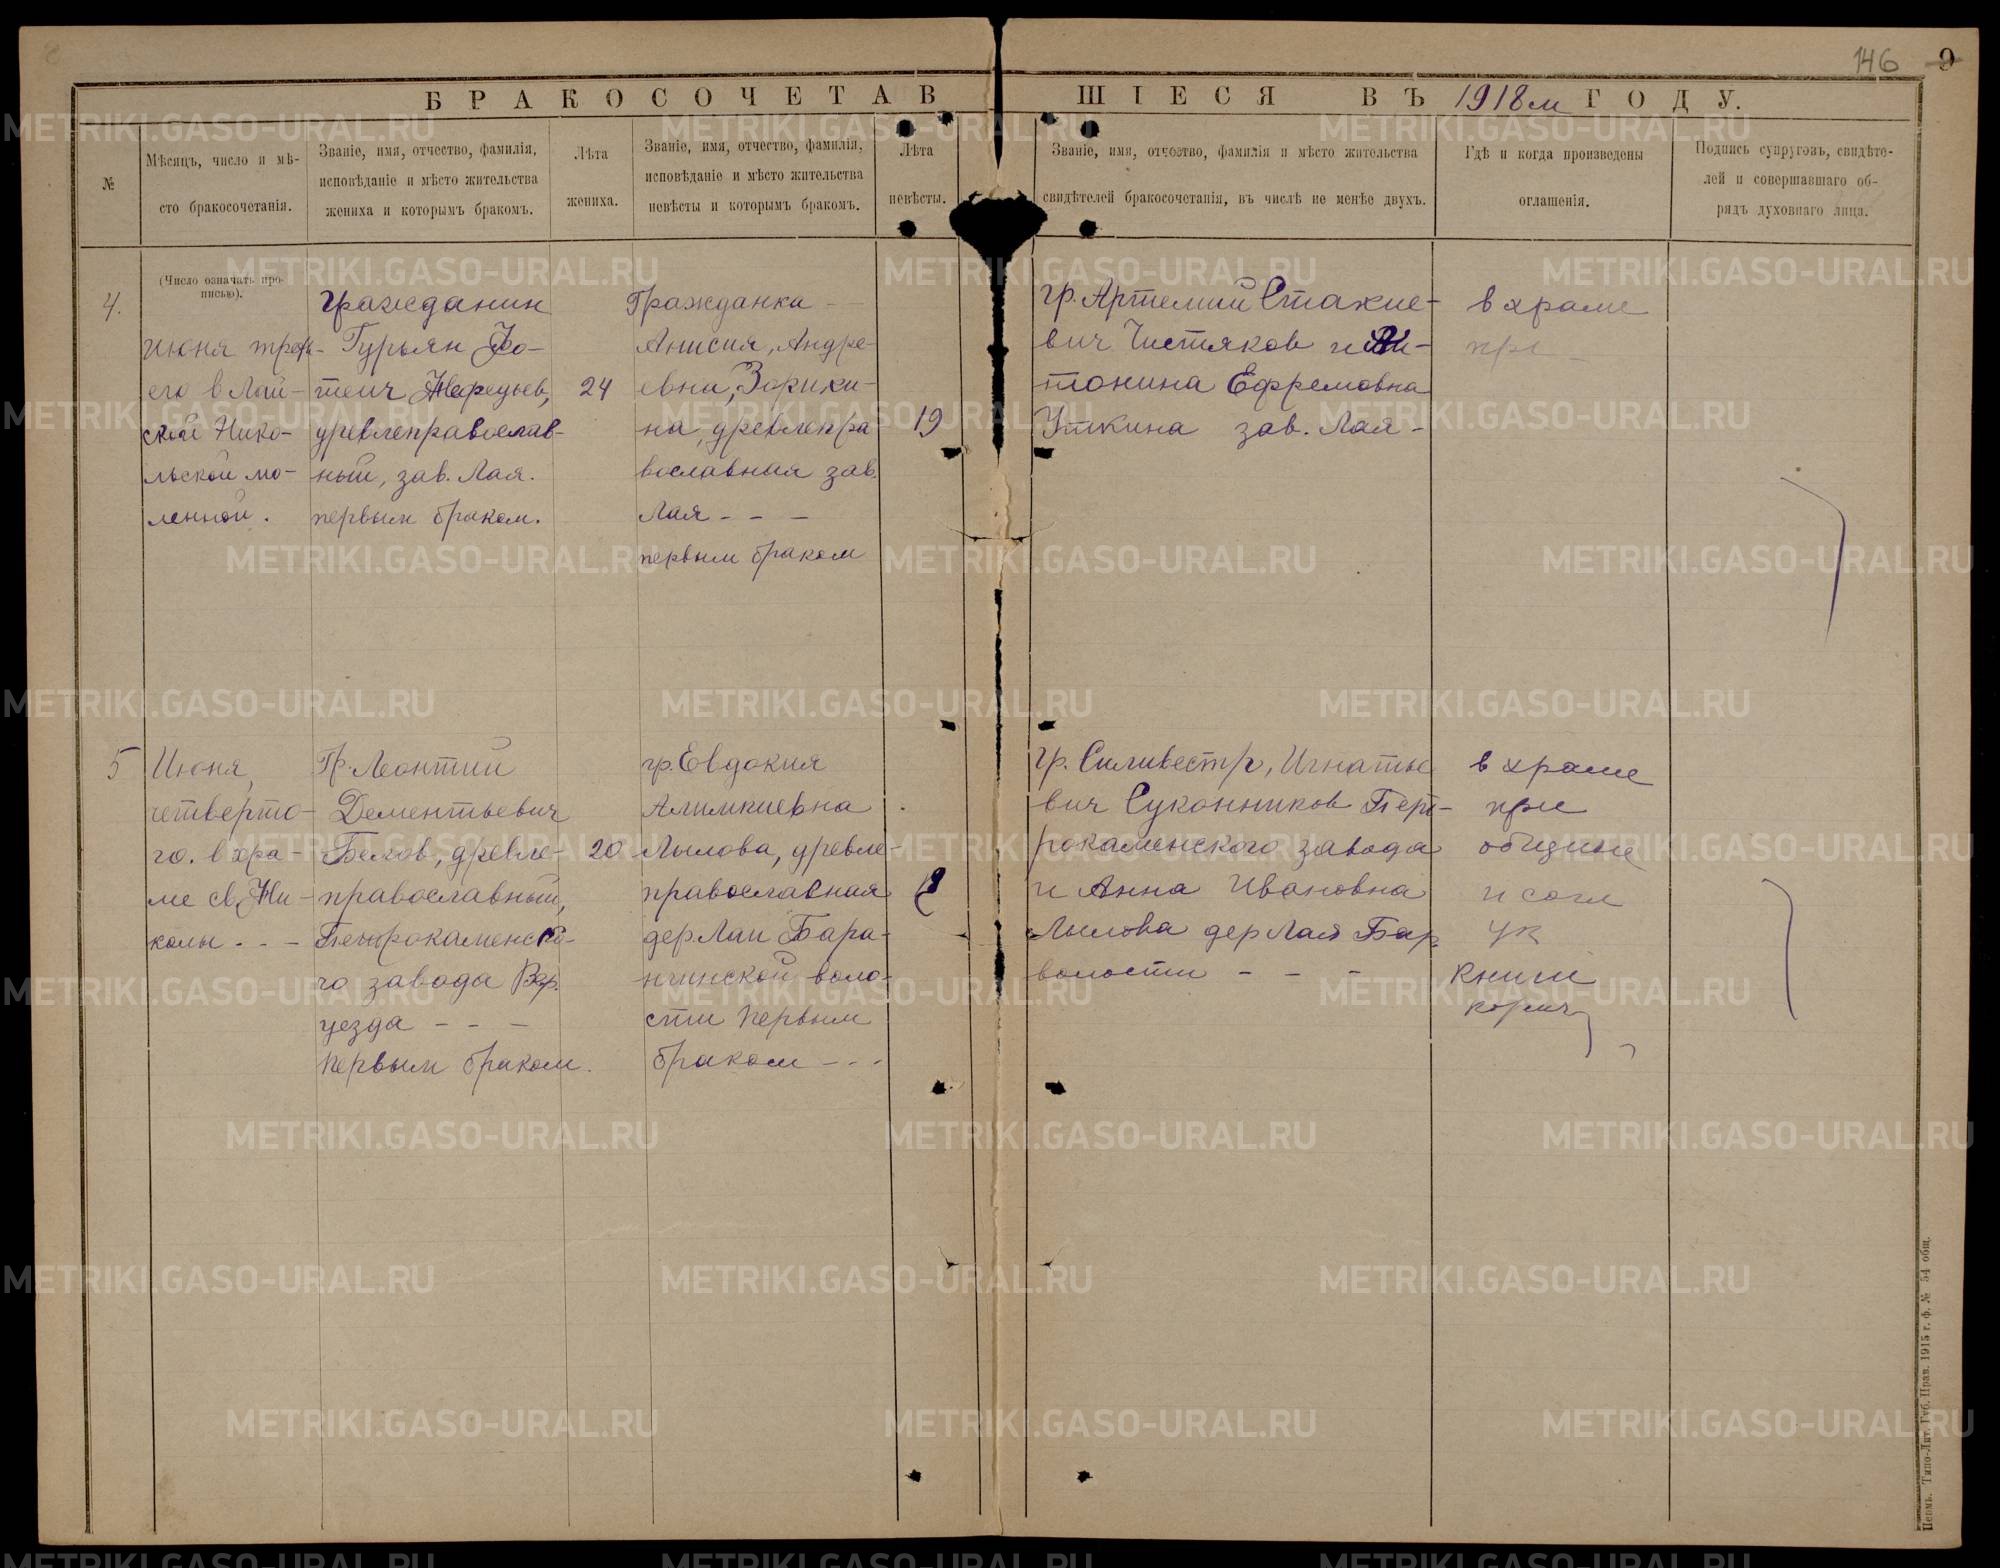 146 9
БРАКОСОЧЕТАВШІЕСЯ ВЪ 1918 м ГОДУ.
№
Мѣсяцъ, число и мѣ-
сто бракосочетанія.
Званіе, имя, отчество, фамилія,
исповѣданіе и мѣсто жительства
жениха и которымъ бракомъ.
Лѣта
жениха.
Званіе, имя, отчество, фамилія,
исповѣданіе и мѣсто жительства
невѣсты и которымъ бракомъ.
Лѣта
невѣсты.
Званіе, имя, отчество, фамилія и мѣсто жительства
свидѣтелей бракосочетанія, въ числѣ не менѣе двухъ.
Гдѣ и когда произведены
оглашенія.
Подпись супруговъ, свидѣте-
лей и совершавшаго об-
рядъ духовнаго лица.
(Число означать про-
писью).
4.
июня треть-
его в Лай-
ской Нико-
льской мо-
ленной.
Гражданин
Гурьян Фо-
теич Нефедьев,
древлеправослав-
ный, зав. Лая.
первым браком.
24
Гражданка
Анисия, Андре-
евна,
на, древлепра
вославная зав.
Лая - - -
первым браком
19
гр. Артемий
вич Чистяков и Ан-
тонина Ефремовна
Уткина зав. Лая -
в храме
при
5
Июня,
четверто-
го. в хра-
ме св. Ни-
колы - - -
Гр. Леонтий
Дементьевич
Белов, древле-
православный,
Петрокаменска-
го завода Вер.
уезда - - -
первым браком.
20
гр. Евдокия
Алимпиевна
Лылова, древле-
православная
дер Лаи Бара-
нчинской воло-
сти первым
браком - - -
гр. Сильвестр, Игнатье
вич Суконников Пет-
рокаменского завода
и Анна Ивановна
Лылова дер Лая Бар
волости - - -
в храме
при
общине
и согл
ук
книги
кормч
Пермь. Типо-Лит. Губ. Прав. 1915 г. ф. № 54 общ.
METRIKI.GASO-URAL.RU